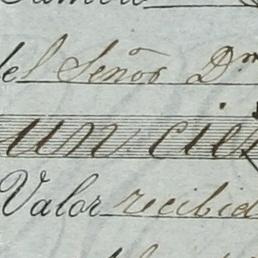 del Señor Dn
un cie
Valor recibid